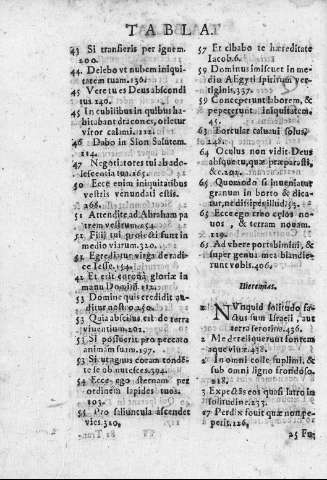 TABLA.
43 Si transieris per ignem.
200.
44 Delebo vt nubem iniqui-
tatem tuam. 136.
45 Vere tu es Deus abscondi
tus 240.
45 In cubilibus in quibus ha-
bitabant dracones, orietur
viror calami. 112.
46 Dabo in Sion Salutem.
114.
47 Negotiatores tui ab ado-
lescentia tua. 265.
50 Ecce enim iniquitatibus
vestris venundati estis.
268.
51 Attendite ad Abraham pa
trem vestrum 254.
51 Filij tui proiecti sunt in
medio viarum. 320.
Egredietur virga de radi-
ce Iesse. 154.
Et erit corona gloriæ in
manu Domini. 112.
53 Domine quis credidit au-
ditui nostro. 250.
53 Quia abscisus est de terra
viuentium 201.
53 Si posuerit pro peccato
animam suam. 197.
coram ronde-
te se obmutescet. 394.
54 Ecce ego sternam per
ordinem lapides tuos.
103.
55 Pro saliuncula ascendet
abies. 310,
57 Et cibabo te hæreditate
Iacob. 6.
59 Dominus imiscuit in me-
dio Aegypti spiritum ver-
tiginis. 337.
59 Conceperunt laborem, &
pepererunt iniquitatem.
45.
63 Torcular calcaui solus,
248.
64 Oculus non vidit Deus
absque tu, quæ præparasti,
&c. 202.
65 Quomodo si inueniatur
granum in botro & dica-
tur, ne disipes illud. 35.
65 Ecce ego creo cælos no-
uos, & terram nouam.
65 Ad vbera portabimini, &
super genua
rent vobis. 406.
Hieremias.
2 NVnquid solitudo fa-
ctus sum Israeli, aut
terra serotina. 436.
2 Me dereliquerunt fontem
aquæ viuæ. 438.
2 In omni colle sublimi, &
sub omni ligno frondoso.
218.
3 Expectās eos quasi latro in
solitudine. 233.
17 Perdix fouit quæ non pe-
perit. 126,
25 Fu-